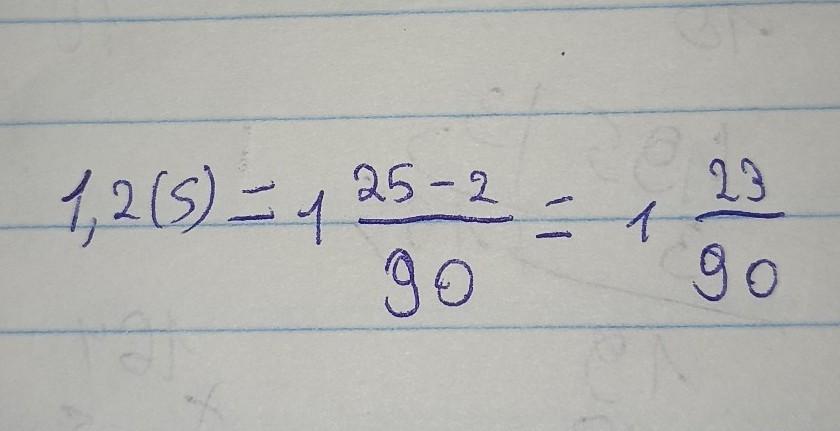 1,2(5) = 1 25-2/90 = 1 23/90